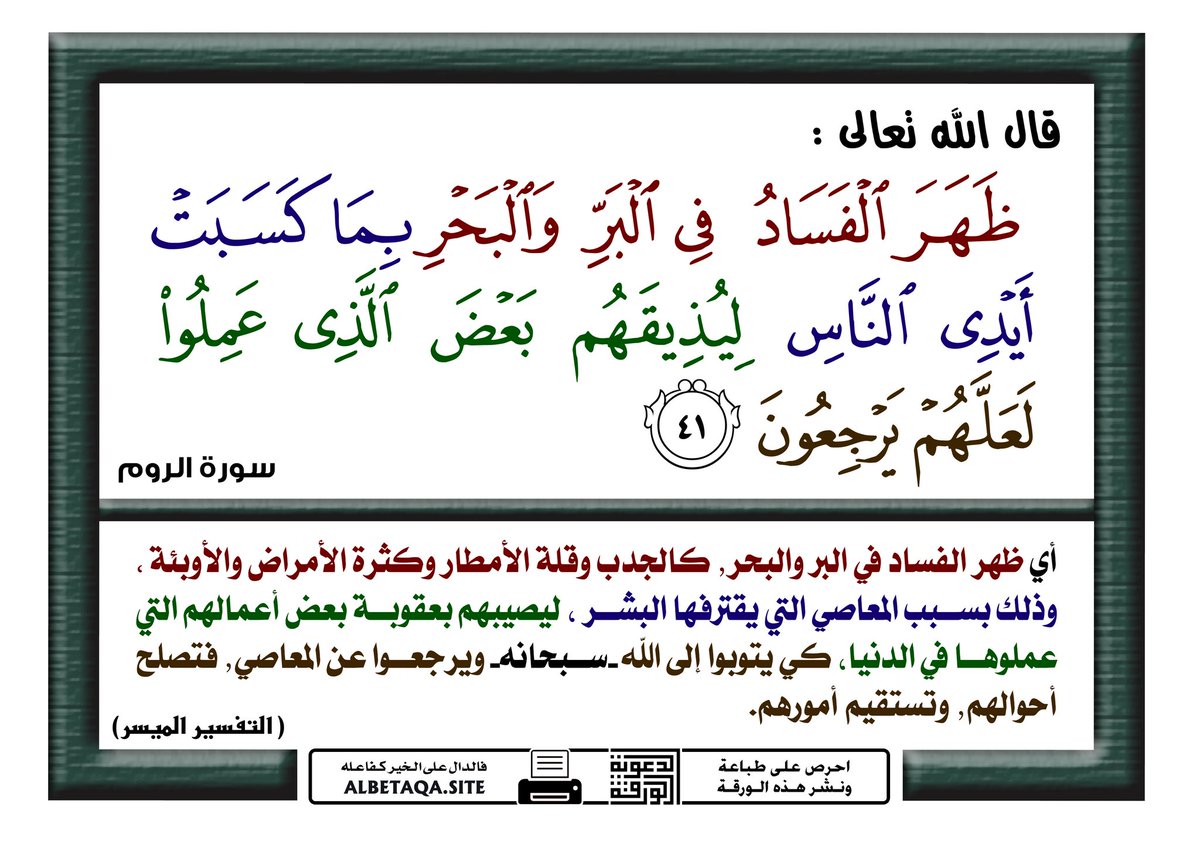 قال الله تعالى :
ظَهَرَ ٱلْفَسَادُ فِى ٱلْبَرِّ وَٱلْبَحْرِ بِمَا كَسَبَتْ
أَيْدِى ٱلنَّاسِ لِيُذِيقَهُم بَعْضَ ٱلَّذِى عَمِلُوا۟
لَعَلَّهُمْ يَرْجِعُونَ ٤١
سورة الروم
أي ظهر الفساد في البر والبحر, كالجدب وقلة الأمطار وكثرة الأمراض والأوبئة ،
وذلك بسبب المعاصي التي يقترفها البشر ، ليصيبهم بعقوبة بعض أعمالهم التي
عملوها في الدنيا، كي يتوبوا إلى الله ـسبحانهـ ويرجعوا عن المعاصي, فتصلح
أحوالهم, وتستقيم أمورهم.
(التفسير الميسر)
احرص على طباعة
ونشر هذه الورقة
الورقة
الدعوية
فالدال على الخير كفاعله
ALBETAQA.SITE